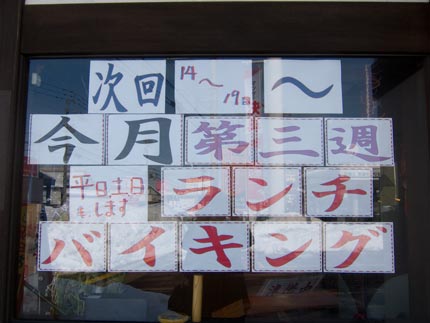 次回 14〜19日 〜
今月第三週
平日土日もします ランチ
バイキング